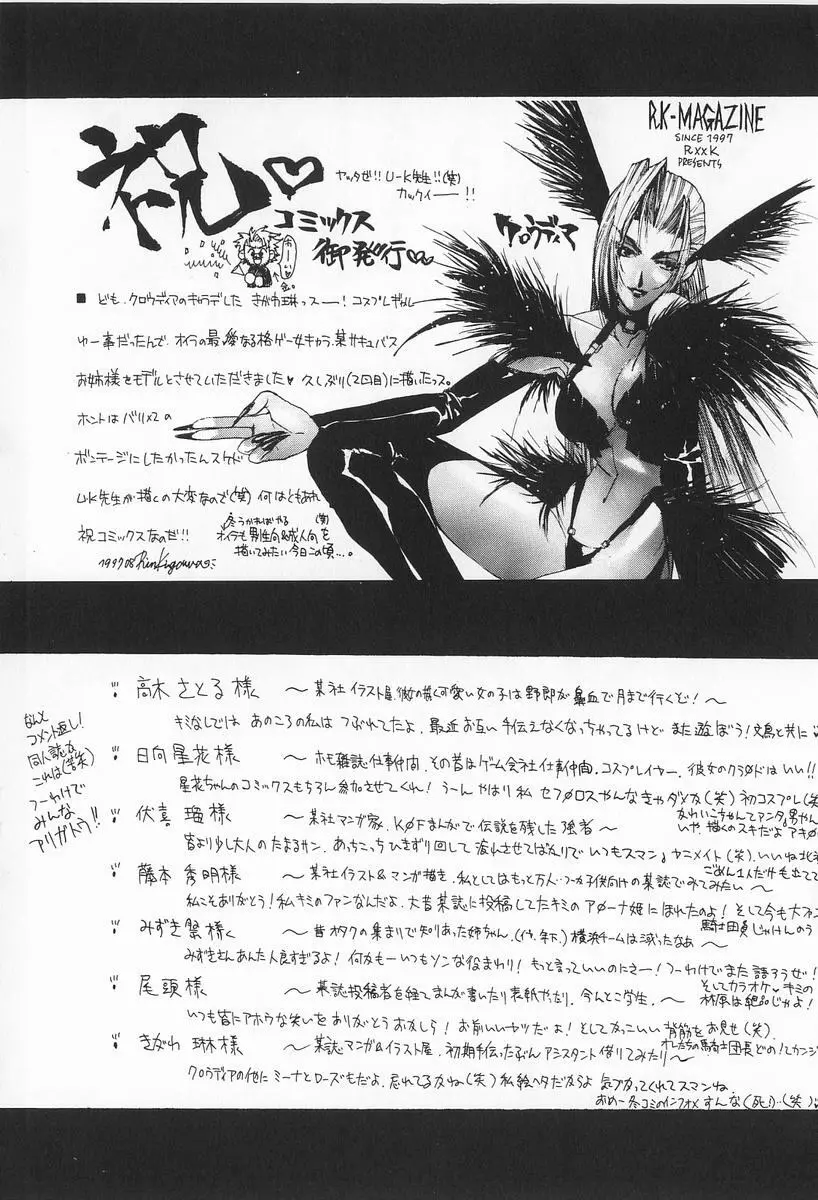 祝♡
ヤッタぜ!! U-K先生!!(笑)
カックイー——!!
コミックス
御発行♡♡
R.K-MAGAZINE
SINCE 1997
RxxK
PRESENTS
クロウディア
■ ども、クロウディアのキャラデした きがわ琳っスー—! コスプレギャル
ゆー事だったんで、オイラの最愛なる格ゲー女キャラ、某サキュバス
お姉様をモデルとさせていただきました♥ 久しぶり(2回目)に描いたっス。
ホントはバリバリの
ボンテージにしたかったんスケド
U.K先生が描くの大変なので(笑) 何はともあれ
祝コミックスなのだ!!
オイラも男性向&成人向を
描いてみたい今日この頃…。
1997.08
なんと
コメント返し!
同人誌な
これは(苦笑)
つーわけで
みんな
アリガトウ!!
高木 さとる 様 〜 某社イラスト屋、彼の描く可愛い女の子は野郎が鼻血で月まで行くぞ! 〜
キミなしでは あのころの私は つぶれてたよ、最近お互い手伝えなくなっちゃってるけど また遊ぼう!文鳥と共に
日向 星花 様 〜 ホモ雑誌仕事仲間、その昔はゲーム会社仕事仲間、コスプレイヤー、彼女のクラ∅ドは いい!!
星花ちゃんのコミックスももちろん 参加させてくれ! うーん やはり私 セフ∅ロス やんなきゃダメか(笑) 初コスプレ(笑
伏喜 瑠 様 〜 某社マンガ家、K∅Fまんがで伝説を残した強者 〜
かわいこちゃんてアンタ男やん
いや、描くのスキだよ アキ∅
皆より少し大人の たよるサン、あっちこっち ひきずり回して 疲れさせてばかりで いつもスマン。ヤニメイト(笑)、いいね北
藤本 秀明 様 〜 某社イラスト&マンガ描き、私としてはもっと万人…つーか子供向けの某誌でみてみたい 〜
ごめん1人だけも立てて
私こそありがとう!私キミのファンなんだよ、大昔某誌に投稿してたキミの ア∅ーナ姫に ほれたのよ! そして今も大ファン
騎士団員じゃけんのう
みずき 祭 様 〜 昔オタクの集まりで知りあった姉ちゃん、(イヤ、年下) 横浜チームは滅ったなあ 〜
みずきさん あんた人良すぎるよ! 何かもー いつもソンなまわり! もっと言っていいのにさー! つーわけでまた語ろうぜ!
そしてカラオケ♥ キミの
林原は絶品じゃよ!
尾頭 様 〜 某誌投稿者を経てまんが書いたり表紙やったり、今んとこ学生、〜
いつも皆にアホウな笑いを ありがとう おかしら! お前いいヤツだよ! としてかっこいい 背筋を お見せ(笑)
オレたちの騎士団長どの!てカンジ
きがわ 琳 様 〜 某誌マンガ&イラスト屋、初期手伝ったぶん アシスタント 借りてみたり 〜
クロウディアの他に ミーナとローズもだよ、忘れてるかね(笑) 私絵ヘタだからよ 気づかってくれてスマンね、
おめー冬コミのインフォメ すんな(死)…(笑)